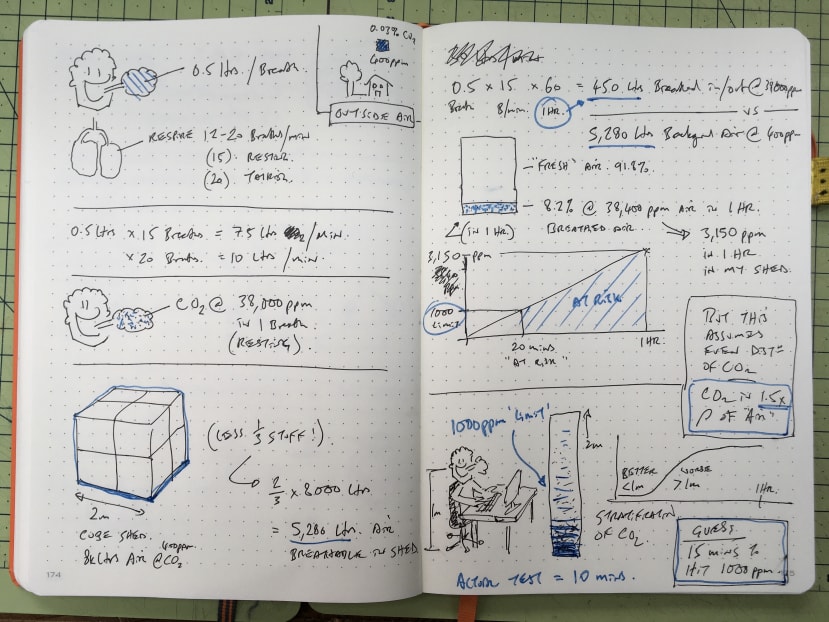 0.5 ltrs. /Breath.
RESPIRE 12-20 Breaths/min
(15). RESTING.
(20). TALKING.
0.03% CO2
400ppm
OUTSIDE AIR
0.5 ltrs x 15 Breaths = 7.5 ltrs /min.
x 20 Breaths. = 10 ltrs /min.
CO2 @ 38,000ppm
IN 1 Breath
(RESTING).
(LESS 1/3 STUFF!).
2/3 x 8000 ltrs
= 5,280 ltrs. AIR
BREATHABLE IN SHED.
2m
CUBE SHED.
8k ltrs Air @ CO2 400ppm
174
0.5 x 15 x 60 = 450 ltrs Breathed in/out @ 38,000ppm
Breath B/min. 1HR.
VS
5,280 ltrs Background Air @ 400ppm
"FRESH" AIR. 91.8%.
8.2% @ 38,400 ppm AIR IN 1 HR.
BREATHED AIR.
(IN 1 HR)
3,150 ppm
IN 1 HR
IN MY SHED.
3,150 ppm
1000
LIMIT
AT RISK
20 mins
"AT RISK"
1HR.
BUT THIS
ASSUMES
EVEN DIST=
OF CO2
CO2 IS 1.5x
ρ OF "AIR"
1000ppm 'LIMIT'
2m
1m
BETTER
<1m
WORSE
>1m
1HR.
STRATIFICATION
OF CO2
GUESS.
15 mins to
HIT 1000ppm
ACTUAL TEST = 10 mins.